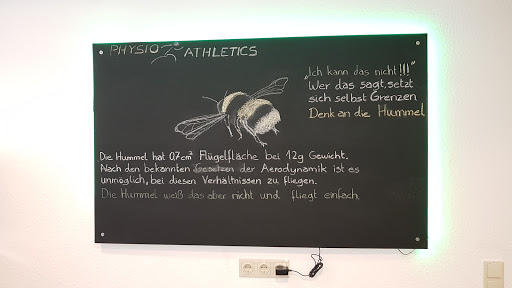 PHYSIO ATHLETICS
„Ich kann das nicht!!!"
Wer das sagt, setzt
sich selbst Grenzen
Denk an die Hummel
Die Hummel hat 0,7cm² Flügelfläche bei 12g Gewicht.
Nach den bekannten Gesetzen der Aerodynamik ist es
unmöglich, bei diesen Verhältnissen zu fliegen.
Die Hummel weiß das aber nicht und fliegt einfach.